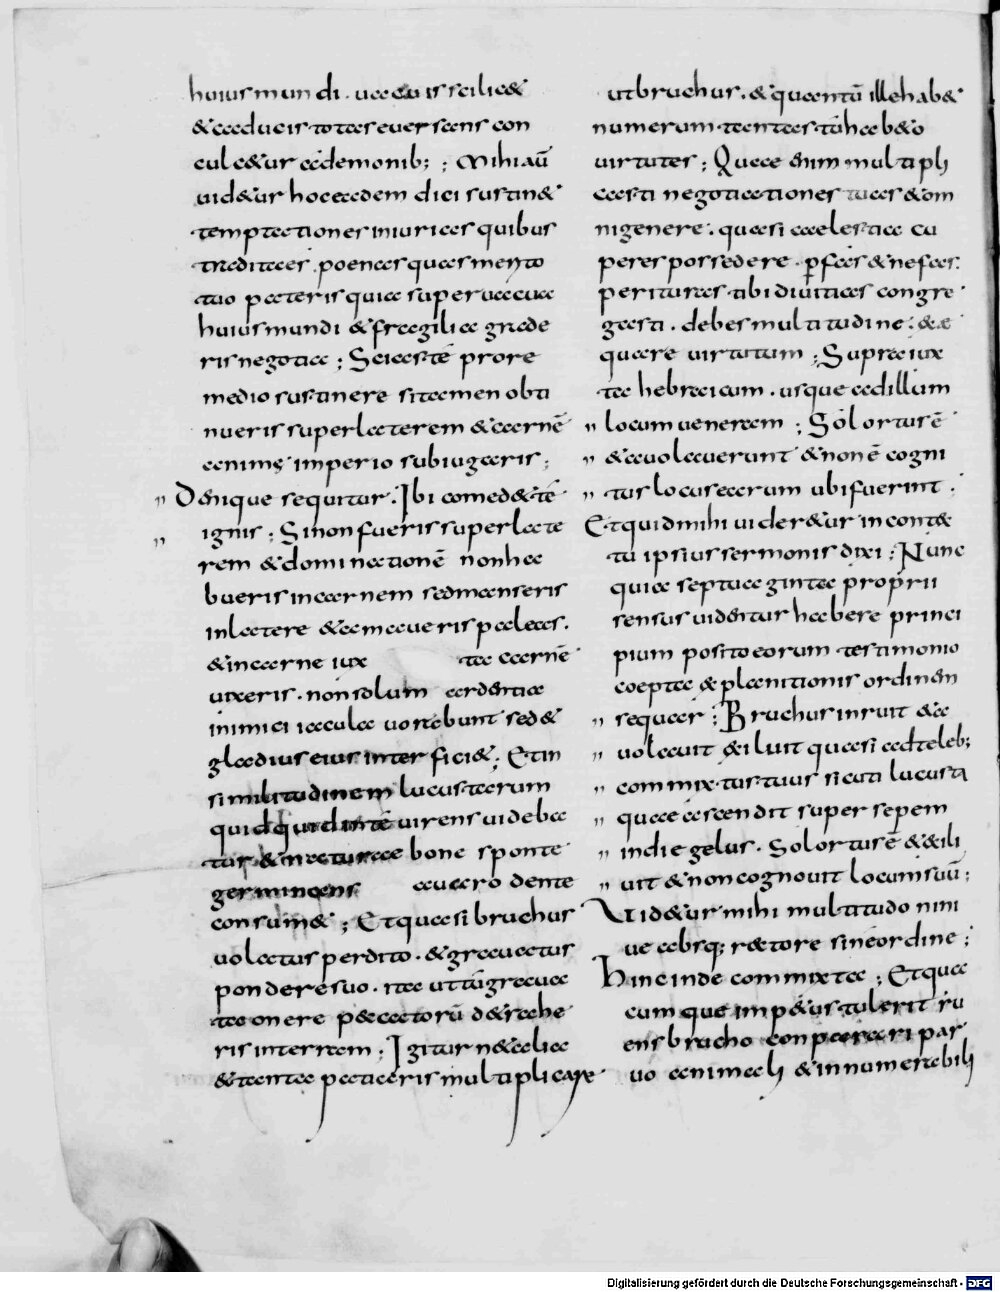 huius mundi. uacuis scilic&
& aduersitotas euersans con
culc&ur ademonib; ; Mihi aū
uid&ur hoc eadem dici sustin&
temptationes iniurias quibus
traditaes. poenas quas merito
tuo pateris quia super uacua
huius mundi & fragilia grade
ris negotia ; Scias tē pro re
medio sustinere si tamen obti
nueris super laterem & carnē
animę imperio subiugaris ;
" Denique sequitur. Ibi comed& tē
" ignis ; Si non fueris super late
rem & dominationē non ha
bueris in carnem sed manseris
in latere & amaueris paleas.
& in carne iux ta carnē
uixeris. non solum ardentia
inimici iacula uorabunt sed &
gladius eius interfici& ; Et in
similitudinem lucustarum
quidquid in tē uirens uideba
tur & naturae bone sponte
germinans auaro dente
consum& ; Et quasi bruchus
uolatus perdito. & grauatus
pondere suo. ita ut tū graua
ta onere peccatorū de& rahe
ris in terram ; Igitur n& alia
& tanta patiaeris multiplicare
ut bruchus. & quantū ille hab&
numerum tantas tū hab&o
uirtutes ; Quae enim multipli
casti negotiationes tuas & om
nigenere. quasi caelestia cu
peres possedere. ꝑ fas & nefas.
perituras tibi diuitias congre
gasti. debes multitudine. & ae
quare uirtutum ; Supra iux
ta hebraicum. usque ad illum
" locum ueneram ; Sol ortus ē
" & auolauerunt & non ē cogni
" tus locus earum ubi fuerint ;
Et quid mihi uider&ur in conte
tu ipsius sermonis dixi ; Nunc
quia septuaginta proprii
sensus uidentur habere princi
pium posito eorum testimonio
coepta explanationis ordinem
" sequar ; Bruchus inruit & a
" uolauit exiluit quasi adteleb;
" commixtus tuus sicuti lucusta
" quae ascendit super sepem
" in die gelus. Sol ortus ē & exili
" uit & non cognouit locum suū ;
Uid&ur mihi multitudo nini
ue absq; r&tore sine ordine ;
Hinc inde commixta ; Et quae
cumque imp&us tulerit ru
ens brucho conparari par
uo animali & innumerabili
Digitalisierung gefördert durch die Deutsche Forschungsgemeinschaft - DFG